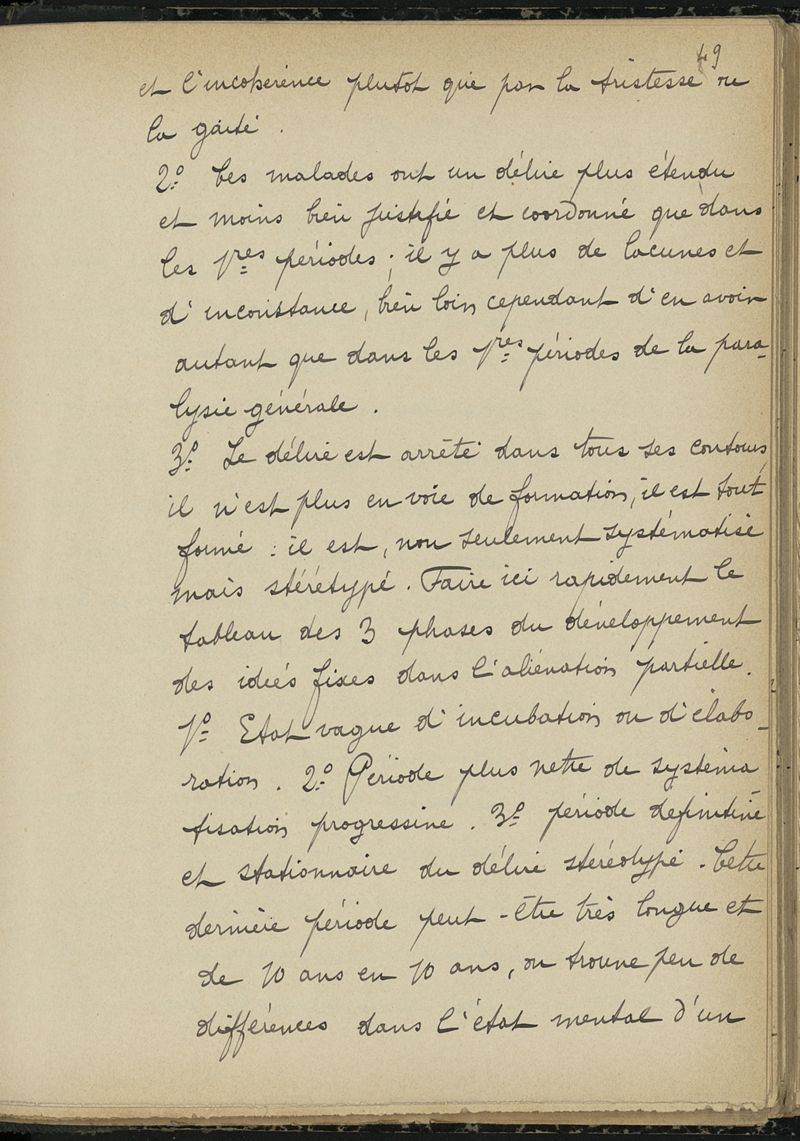 49
et l'incohérence plutot que par la tristesse ou
la gaité.
2º Ces malades ont un délire plus étendu
et moins bien justifié et coordonné que dans
les 1res périodes; il y a plus de lacunes et
d'inconstance, bien loin cependant d'en avoir
autant que dans les 1res périodes de la para-
lysie générale.
3º Le délire est arrêté dans tous ses contours,
il n'est plus en voie de formation, il est tout
formé : il est, non seulement systématisé
mais stérétypé. Faire ici rapidement le
tableau des 3 phases du développement
des idées fixes dans l'aliénation partielle.
1º Etat vague d'incubation ou d'élabo-
ration. 2º Période plus nette de systéma-
tisation progressive. 3º période definitive
et stationnaire du délire stéréotypé. Cette
dernière période peut-être très longue et
de 10 ans en 10 ans, on trouve peu de
différences dans l'état mental d'un